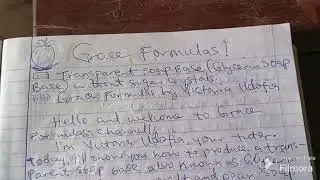 Grace Formulas!
Transparent soap Base (Glycerin soap
Base) without sugar crystals.
Grace Formulas by Victoria Udofia
Hello and welcome to Grace
Formulas channel,
I'm Victoria Udofia your tutor
today, I'll show you how to produce a trans-
parent soap base, also known as Glycerin
and pour soap
Filmora